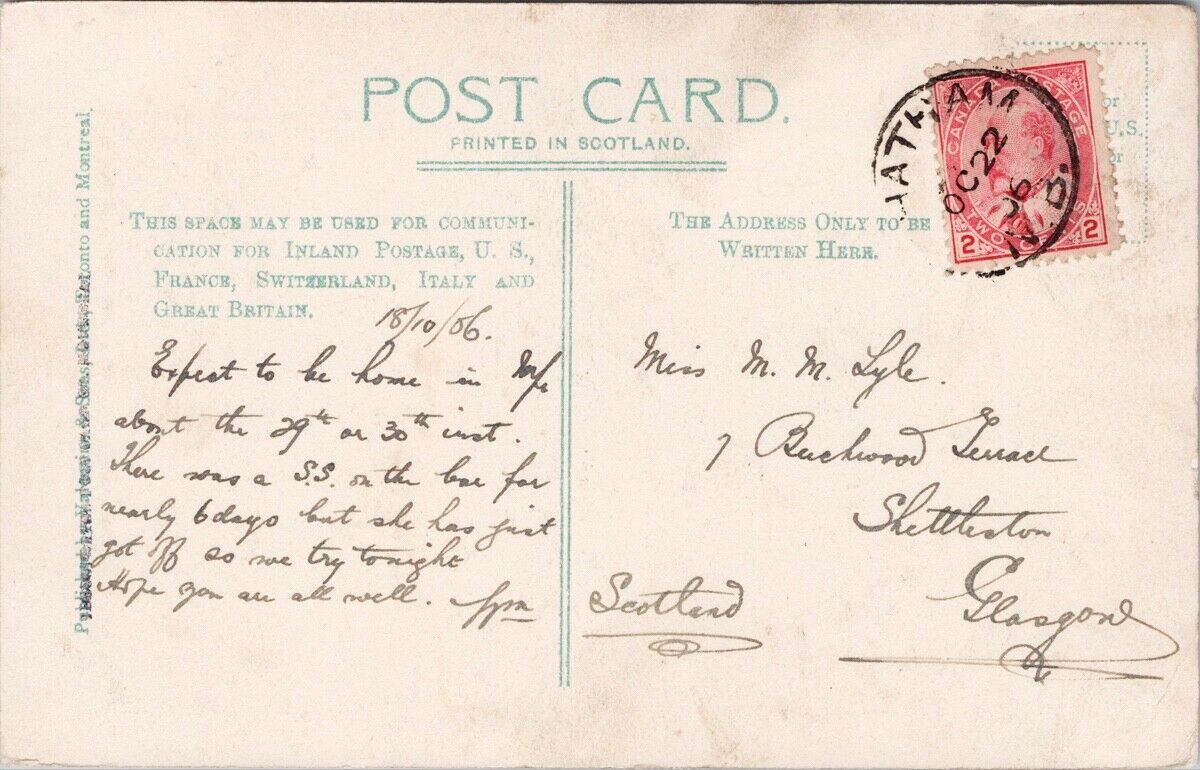 POST CARD.
PRINTED IN SCOTLAND.
THIS SPACE MAY BE USED FOR COMMUNI-
CATION FOR INLAND POSTAGE, U. S.,
FRANCE, SWITZERLAND, ITALY AND
GREAT BRITAIN.
18/10/06.
Expect to be home in
about the 29th or 30th inst.
There was a S.S. on the bar for
nearly 6 days but she has just
got off so we try tonight
Hope you are all well.
THE ADDRESS ONLY TO BE
WRITTEN HERE.
Miss M. M. Lyle.
7 Buckwood Terrace
Shettleston
Glasgow
Scotland
CANADA POSTAGE
2 TWO CENTS 2
HATHAM
OC 22
06
N. B.
or
U.S.
or
Toronto and Montreal.